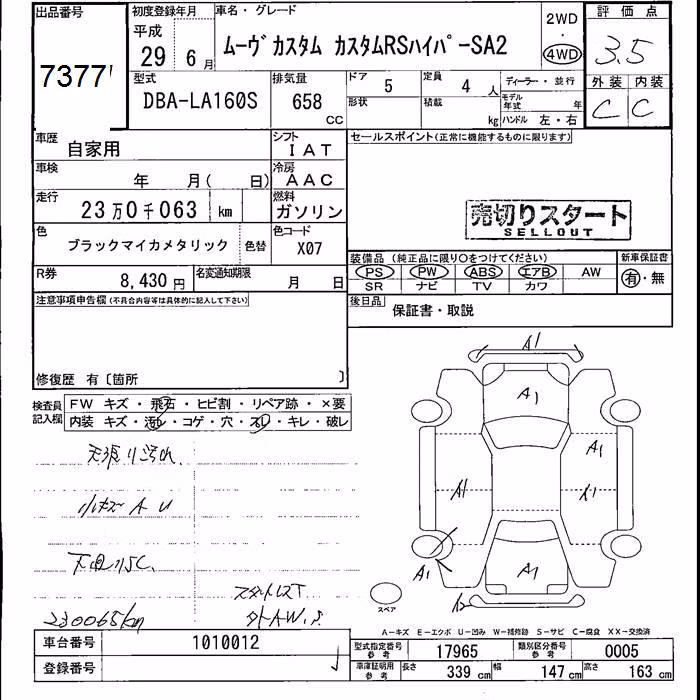 出品番号 初度登録年月 車名・グレード 2WD 評価点
7377
平成 29年 6月 ムーヴカスタム カスタムRSハイパーSA2 4WD 3.5
型式 排気量 ドア 5 定員 4人 ディーラー・並行 外装 内装
DBA-LA160S 658 CC 形状 積載 kg モデル年式 年 ハンドル 左・右 C C
車歴 自家用 シフト IAT セールスポイント(正常に機能するものに限ります)
車検 年 月( 日) 冷房 AAC
走行 23万0千063 km 燃料 ガソリン
売切りスタート
SELLOUT
色 ブラックマイカメタリック 色替 色コード X07
装備品 (純正品に限り○をつけてください) 新車保証書
PS PW ABS エアB AW 有・無
SR ナビ TV カワ
R券 8,430円 名変通知期限 月 日
注意事項申告欄(不具合内容等は具体的に記入して下さい)
後日品 保証書・取説
修復歴 有〔箇所 〕
検査員記入欄 FW キズ・飛石・ヒビ割・リペア跡・×要
内装 キズ・汚レ・コゲ・穴・スレ・キレ・破レ
天張り汚れ
小キズ A U
下回りSC
スタットレスT
230065km 外AW.S
A1
A1
A1
A1
A1
A1
A1
スペア
A-キズ E-エクボ U-凹み W-補修跡 S-サビ C-腐食 XX-交換済
車台番号 1010012
登録番号
型式指定番号 参考 17965 類別区分番号 参考 0005
車庫証明用 参考 長さ 339 cm 幅 147 cm 高さ 163 cm